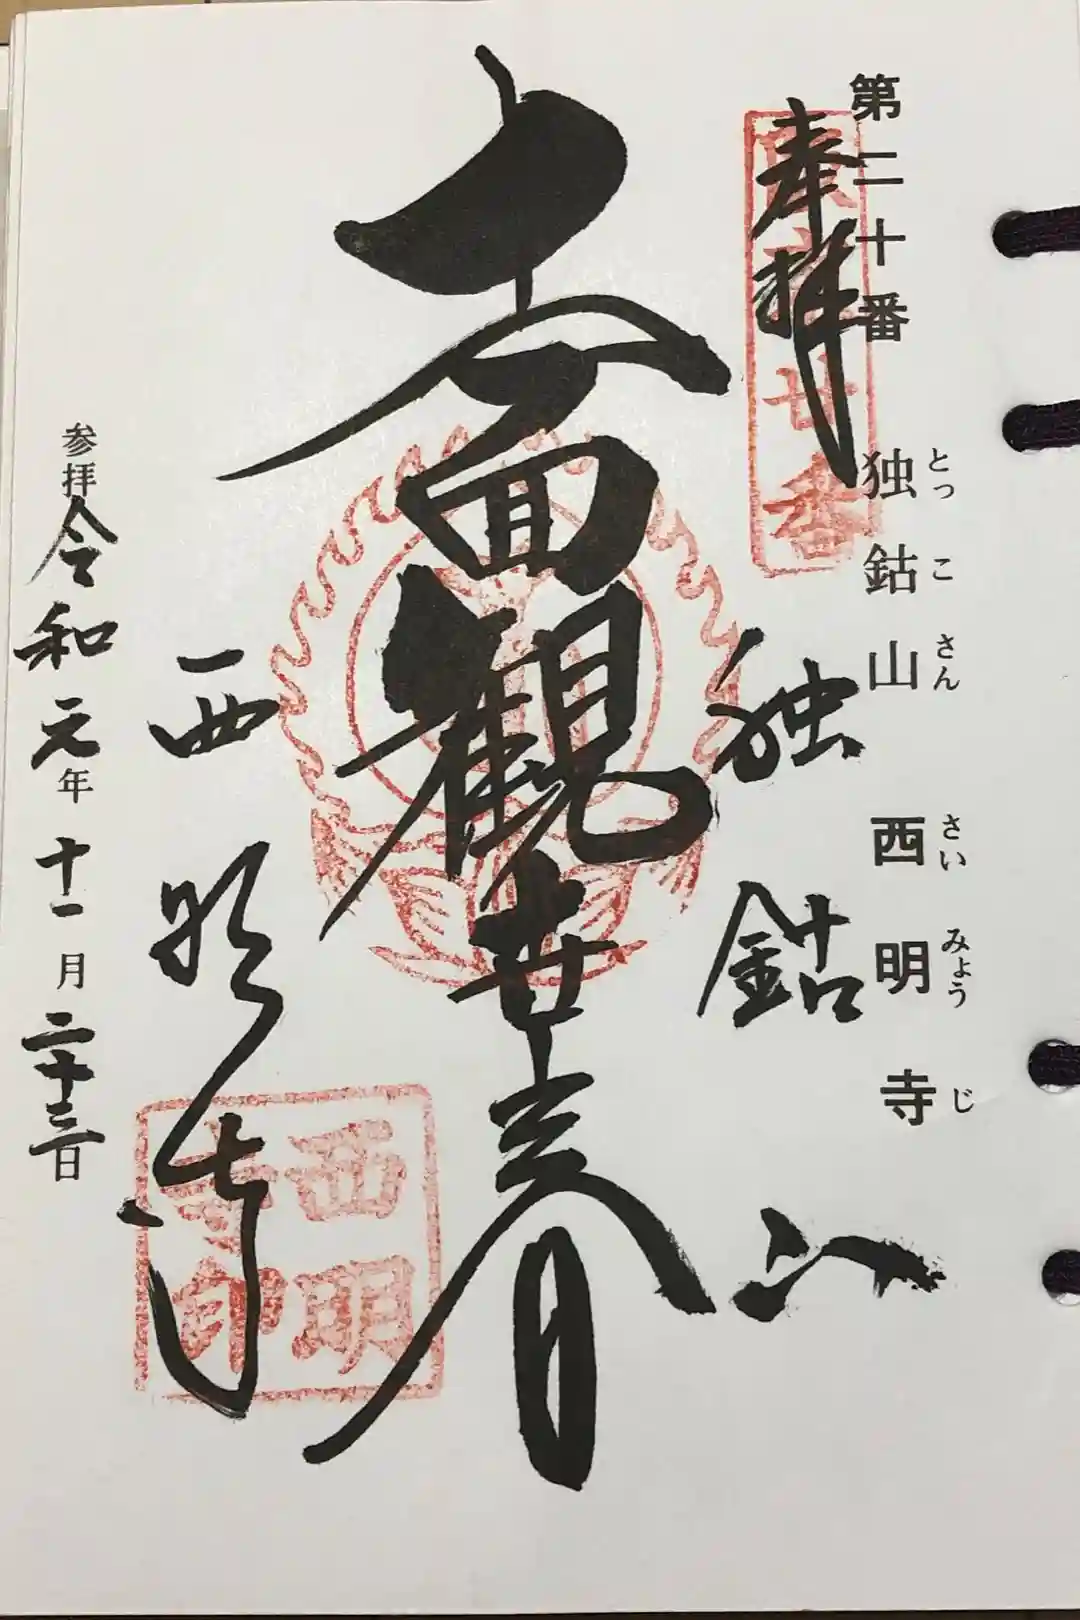 第二十番 独鈷山 西明寺
とっこさん さいみょうじ
奉拝
廿番
独鈷山
面観世音
西明寺
西明寺印
参拝 令和元年 十一月 二十三日